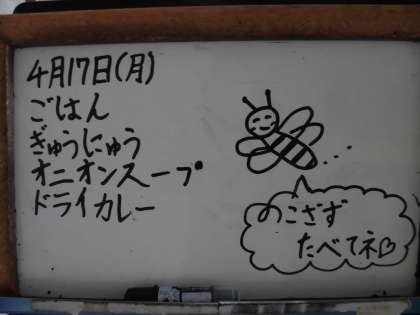 4月17日(月)
ごはん
ぎゅうにゅう
オニオンスープ
ドライカレー
のこさず
たべてネ♡